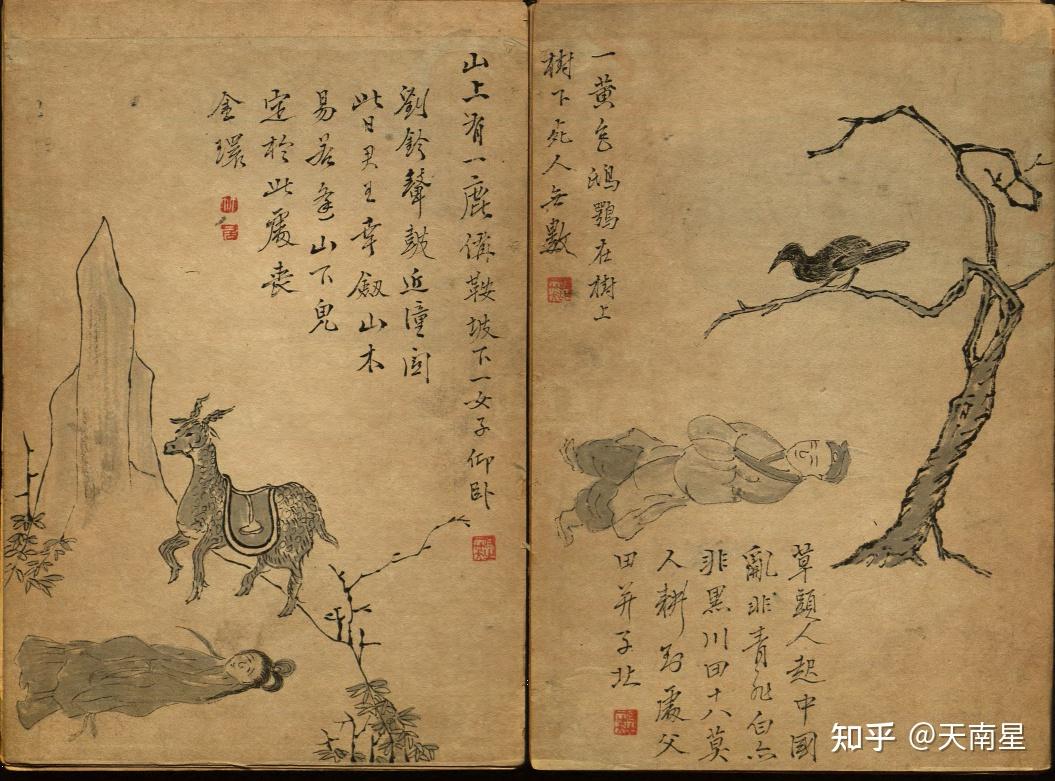 一黄色鴟鴞在樹上
樹下死人无數
草頭人起中國
亂非青非白亦
非黑川田十八莫
人耕對處父
田并子北
山上有一鹿備鞍坡下一女子仰卧
劉鈴聲鼓近潼関
此日君王幸劔山木
易若逢山下鬼
定於此處喪
金環
知乎 @天南星